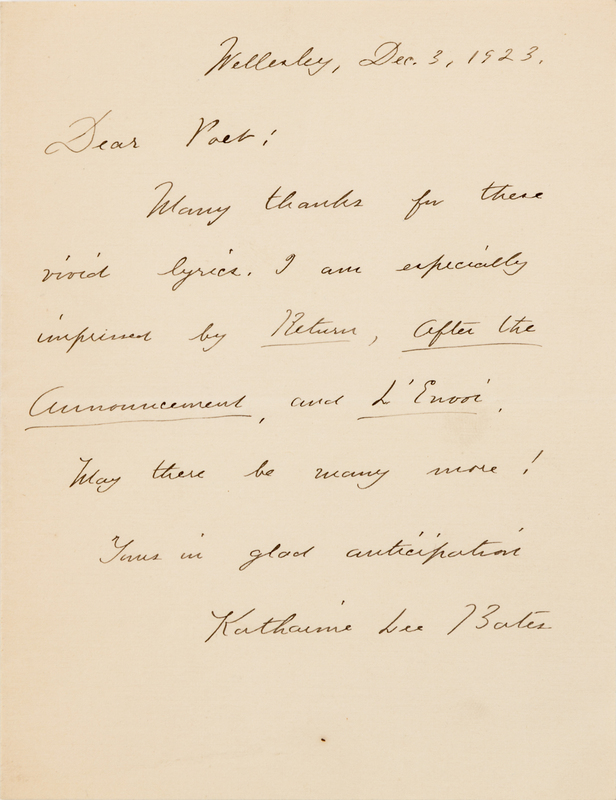 Wellesley, Dec. 3, 1923.
Dear Poet:
Many thanks for these
vivid lyrics. I am especially
impressed by Return, After the
Announcement, and L'Envoi.
May there be many more!
Yours in glad anticipation
Katharine Lee Bates